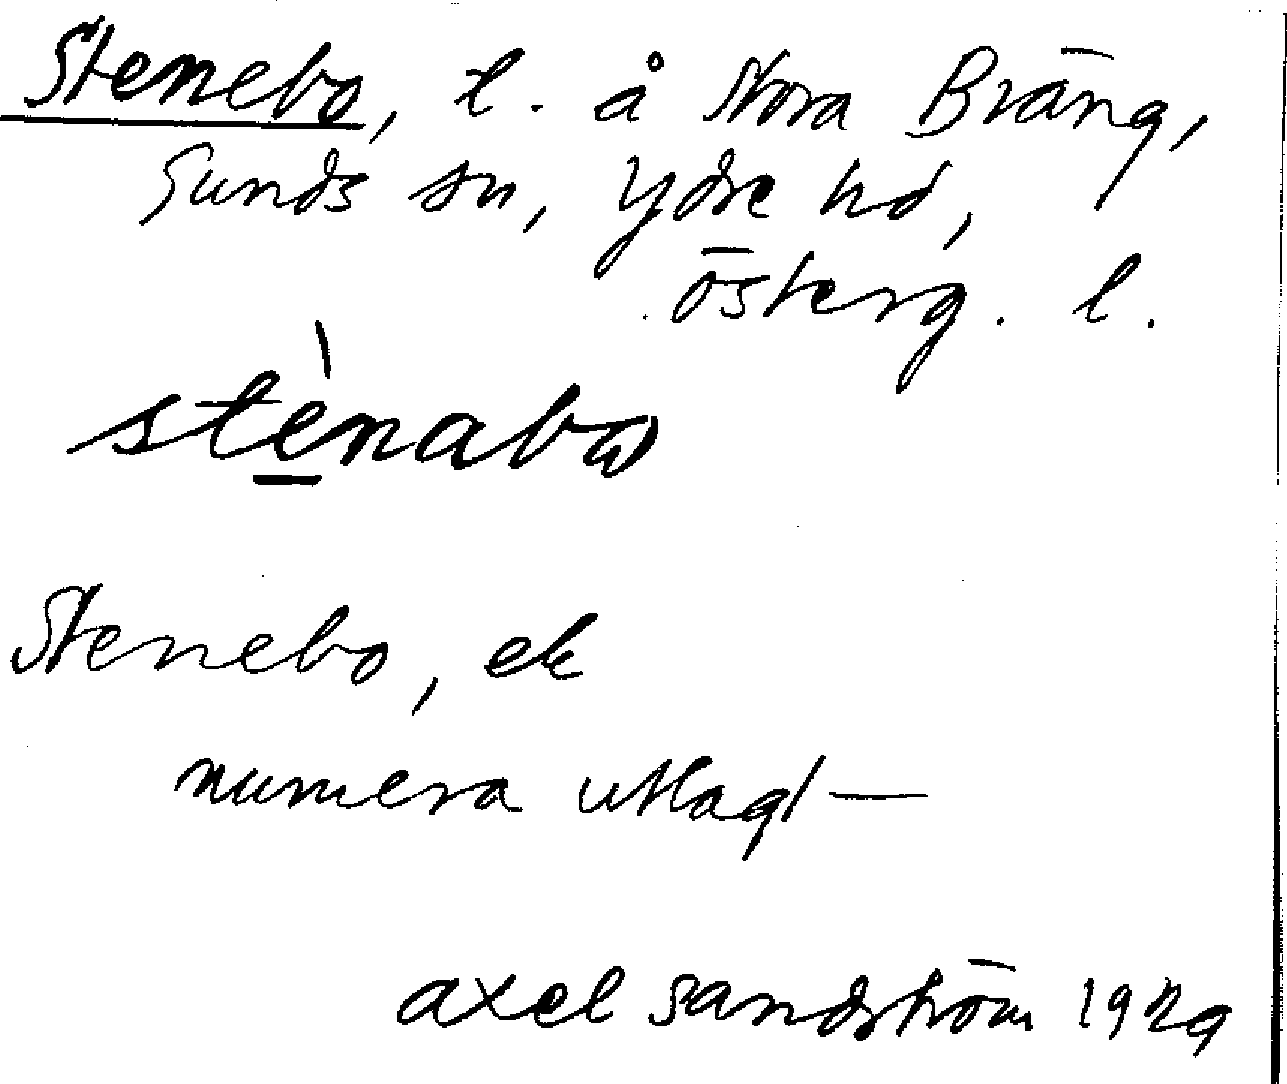 Stenebo, l. å Norra Bräng,
Sunds sn, Ydre hd,
Österg. l.
stènabω
Stenebo, ek
numera utlagt —
Axel Sandström 1929